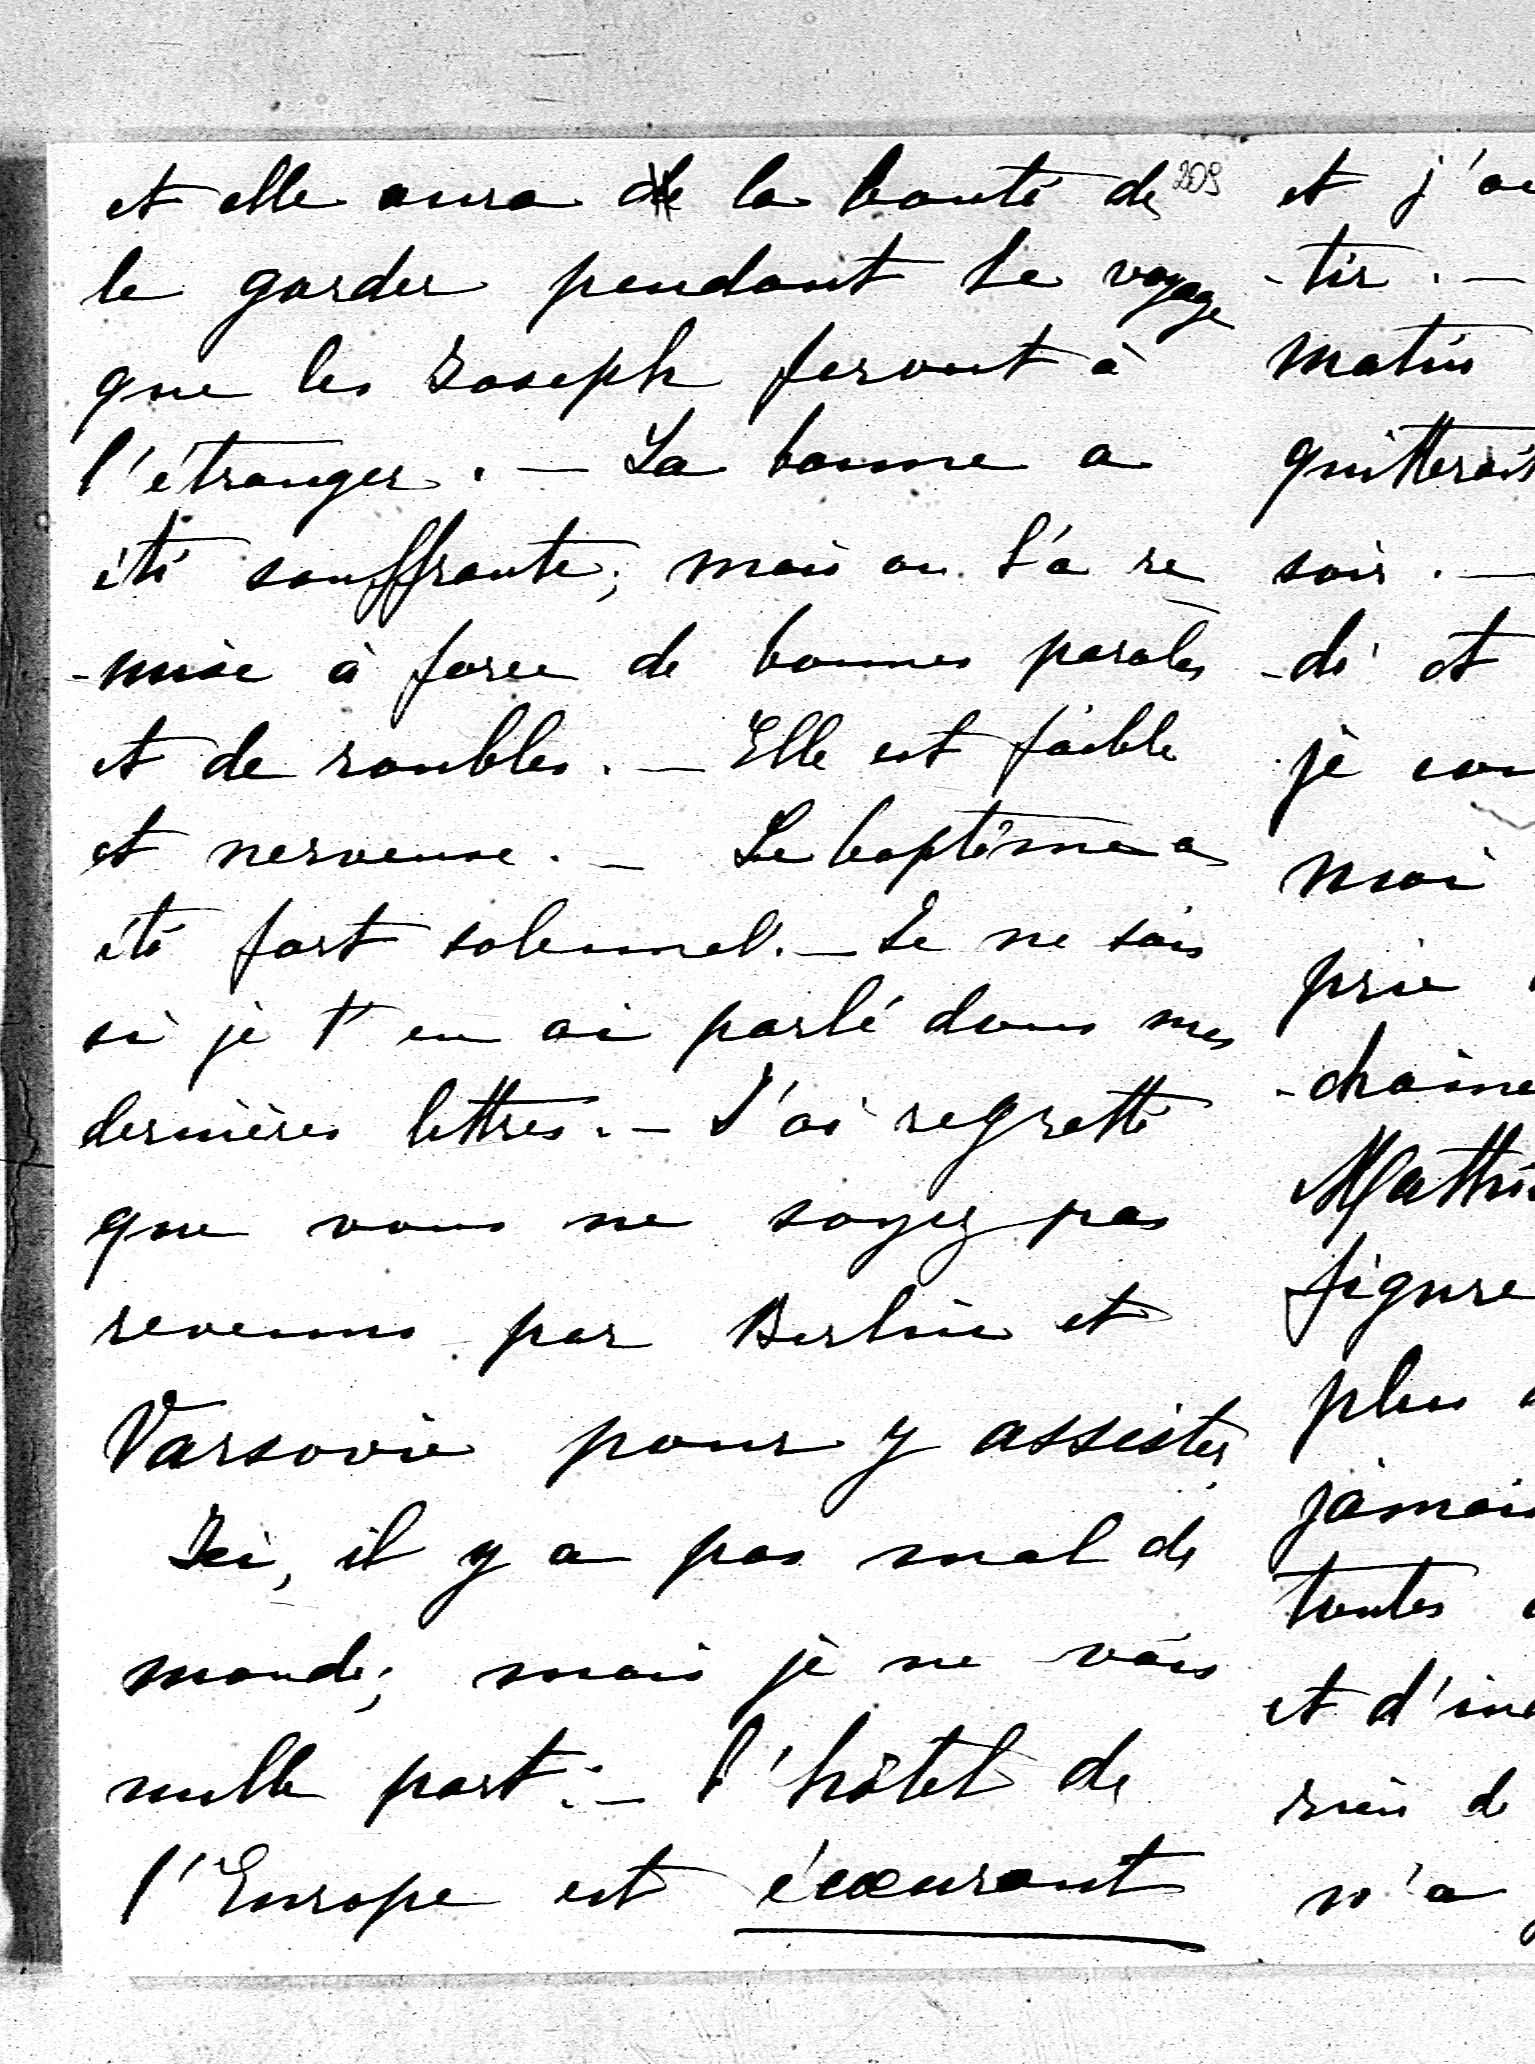 et elle aura de la bonté de 209
le garder pendant le voyage
que les Joseph feront à
l'étranger. — La bonne a
été souffrante; mais on l'a re
-mise à force de bonnes paroles
et de roubles. — Elle est faible
et nerveuse. — Le baptême a
été fort solennel. — Je ne sais
si je t'en ai parlé dans mes
dernières lettres. — J'ai regretté
que vous ne soyez pas
revenus par Berlin et
Varsovie pour y assister.
Ici, il y a pas mal de
monde; mais je ne vais
nulle part. — l'hôtel de
l'Europe est écœurant
et j'ai
-tir. —
matin
quitterait
soir. —
-di et
je
moi
prie
-chaine
figure
plus
jamais
toutes
et d'in
rien d
n'a